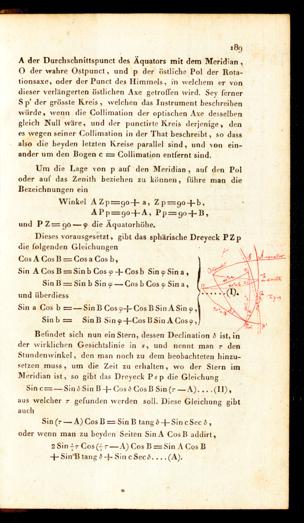 189
A der Durchschnittspunct des Äquators mit dem Meridian,
O der wahre Ostpunct, und p der östliche Pol der Rota-
tionsaxe, oder der Punct des Himmels, in welchem er von
dieser verlängerten östlichen Axe getroffen wird. Sey ferner
S p' der grösste Kreis, welchen das Instrument beschreiben
würde, wenn die Collimation der optischen Axe desselben
gleich Null wäre, und der punctirte Kreis derjenige, den
es wegen seiner Collimation in der That beschreibt, so dass
also die beyden letzten Kreise parallel sind, und von ein-
ander um den Bogen c = Collimation entfernt sind.
Um die Lage von p auf den Meridian, auf den Pol
oder auf das Zenith beziehen zu können, führe man die
Bezeichnungen ein
Winkel A Z p = 90 + a, Z p = 90 + b,
A P p = 90 + A, P p = 90 + B,
und P Z = 90 — φ die Äquatorhöhe.
Dieses vorausgesetzt, gibt das sphärische Dreyeck P Z p
die folgenden Gleichungen
Cos A Cos B = Cos a Cos b,
Sin A Cos B = Sin b Cos φ + Cos b Sin φ Sin a,
Sin B = Sin b Sin φ — Cos b Cos φ Sin a,
und überdiess
Sin a Cos b = — Sin B Cos φ + Cos B Sin A Sin φ,
Sin b = Sin B Sin φ + Cos B Sin A Cos φ,
.....(I).
Äquator
Zenith
Befindet sich nun ein Stern, dessen Declination δ ist, in
der wirklichen Gesichtslinie in s, und nennt man τ den
Stundenwinkel, den man noch zu dem beobachteten hinzu-
setzen muss, um die Zeit zu erhalten, wo der Stern im
Meridian ist, so gibt das Dreyeck P s p die Gleichung
Sin c = — Sin δ Sin B + Cos δ Cos B Sin (τ — A)....(II),
aus welcher τ gefunden werden soll. Diese Gleichung gibt
auch
Sin (τ — A) Cos B = Sin B tang δ + Sin c Sec δ,
oder wenn man zu beyden Seiten Sin A Cos B addirt,
2 Sin ½ τ Cos (½ τ — A) Cos B = Sin A Cos B
+ Sin B tang δ + Sin c Sec δ....(A).